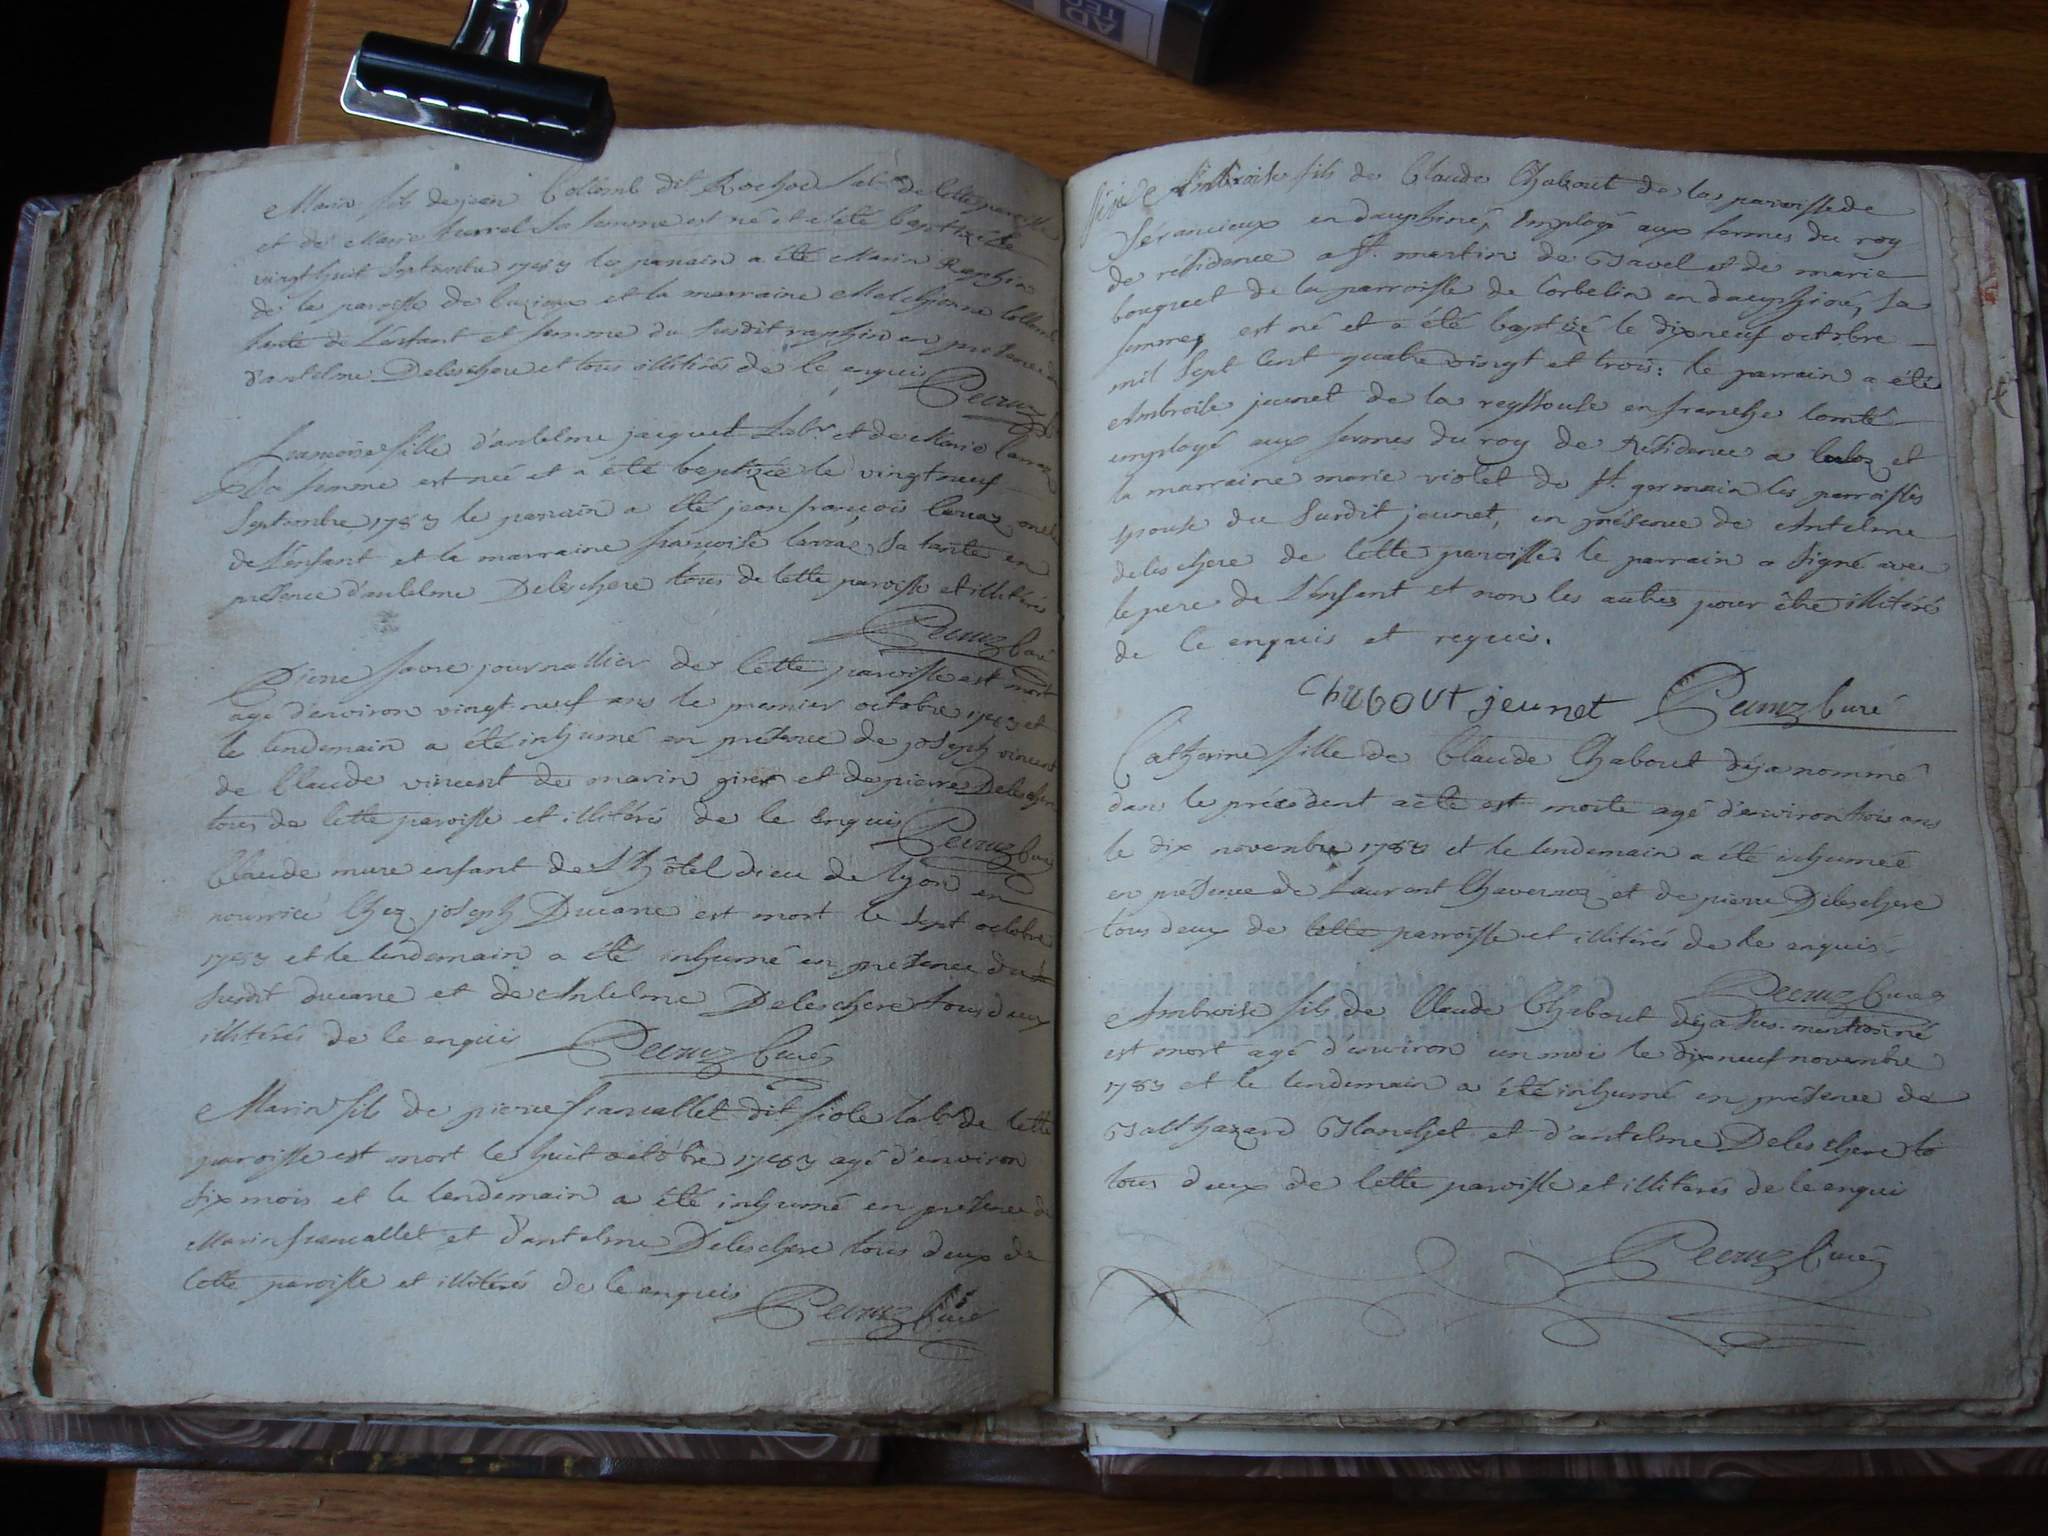 Marin fils de jean Collomb dit Rochod lab.r de cette paroisse
et de Marie Burrel sa femme est né et a été baptizé le
vingt huit Septembre 1783 le parrain a été Marin Raphin
de la paroisse de luzieux et la marraine Melchionne Collomb
tante de L'enfant et femme du susdit raphin en presence
d'antelme Deleschere et tous illitérés de ce enquis
Pecruz
francoise fille d'antelme jacquet Lab.r et de Marie Carraz
Sa femme est née et a été baptizée le vingt neuf
Septembre 1783 le parrain a été jean françois Carraz oncle
de L'enfant et la marraine françoise Carraz Sa tante en
presence d'antelme Deleschere tous de cette paroisse et illitérés
Pecruz Curé
Pierre favre journallier de cette paroisse est mort
agé d'environ vingt neuf ans le premier octobre 1783 et
le lendemain a été inhumé en présence de joseph vincent
de Claude vincent de marin girer et de pierre Deleschere
tous de cette paroisse et illitéré de ce enquis
Pecruz Curé
Claude mure enfant de L'hôtel dieu de lyon en
nourrice Chez joseph Ducarre est mort le sept octobre
1783 et le lendemain a été inhumé en présence du
susdit ducarre et de Antelme Deleschere tous deux
illitérés de ce enquis Pecruz Curé
Marin fils de pierre francallet dit fiole lab.r de cette
paroisse est mort le huit octobre 1783 agé d'environ
six mois et le lendemain a été inhumé en présence de
Marin francallet et d'antelme Deleschere tous deux de
cette paroisse et illitérés de ce enquis
Pecruz Curé
Ambroise fils de Claude Chabout de la paroisse de
Serancieux en dauphiné, Employé aux fermes du roy
de résidence a St. martin de Bavel et de marie
bouquet de la parroisse de Corbelin en dauphiné, Sa
femme, est né et a été baptizé le dix neuf octobre
mil Sept Cent quatre vingt et trois: le parrain a été
Ambroise jeunet de la reyssouse en franche Comté
employé aux fermes du roy de Résidence a Culoz et
la marraine marie violet de St. germain les parroisses
epouse du Susdit jeunet, en présence de Antelme
deleschere de Cette paroisse. le parrain a Signé avec
le pere de L'enfant et non les autres pour être illitéré
de Ce enquis et requis.
Chabout jeunet Pecruz Curé
Catherine fille de Claude Chabout deja nommé
dans le précedent acte est morte agé d'environ trois ans
le dix novembre 1783 et le lendemain a été inhumée
en présence de Laurent Chavernoz et de pierre Deleschere
tous deux de Cette parroisse et illitérés de Ce enquis
Pecruz Curé
Ambroise fils de Claude Chabout deja Sus-mentionné
est mort agé d'environ un moi le dix neuf novembre
1783 et le lendemain a été inhumé en présence de
Balthazard Blanchet et d'antelme Deleschere to
tous deux de Cette paroisse et illitérés de Ce enqui
Pecruz Curé